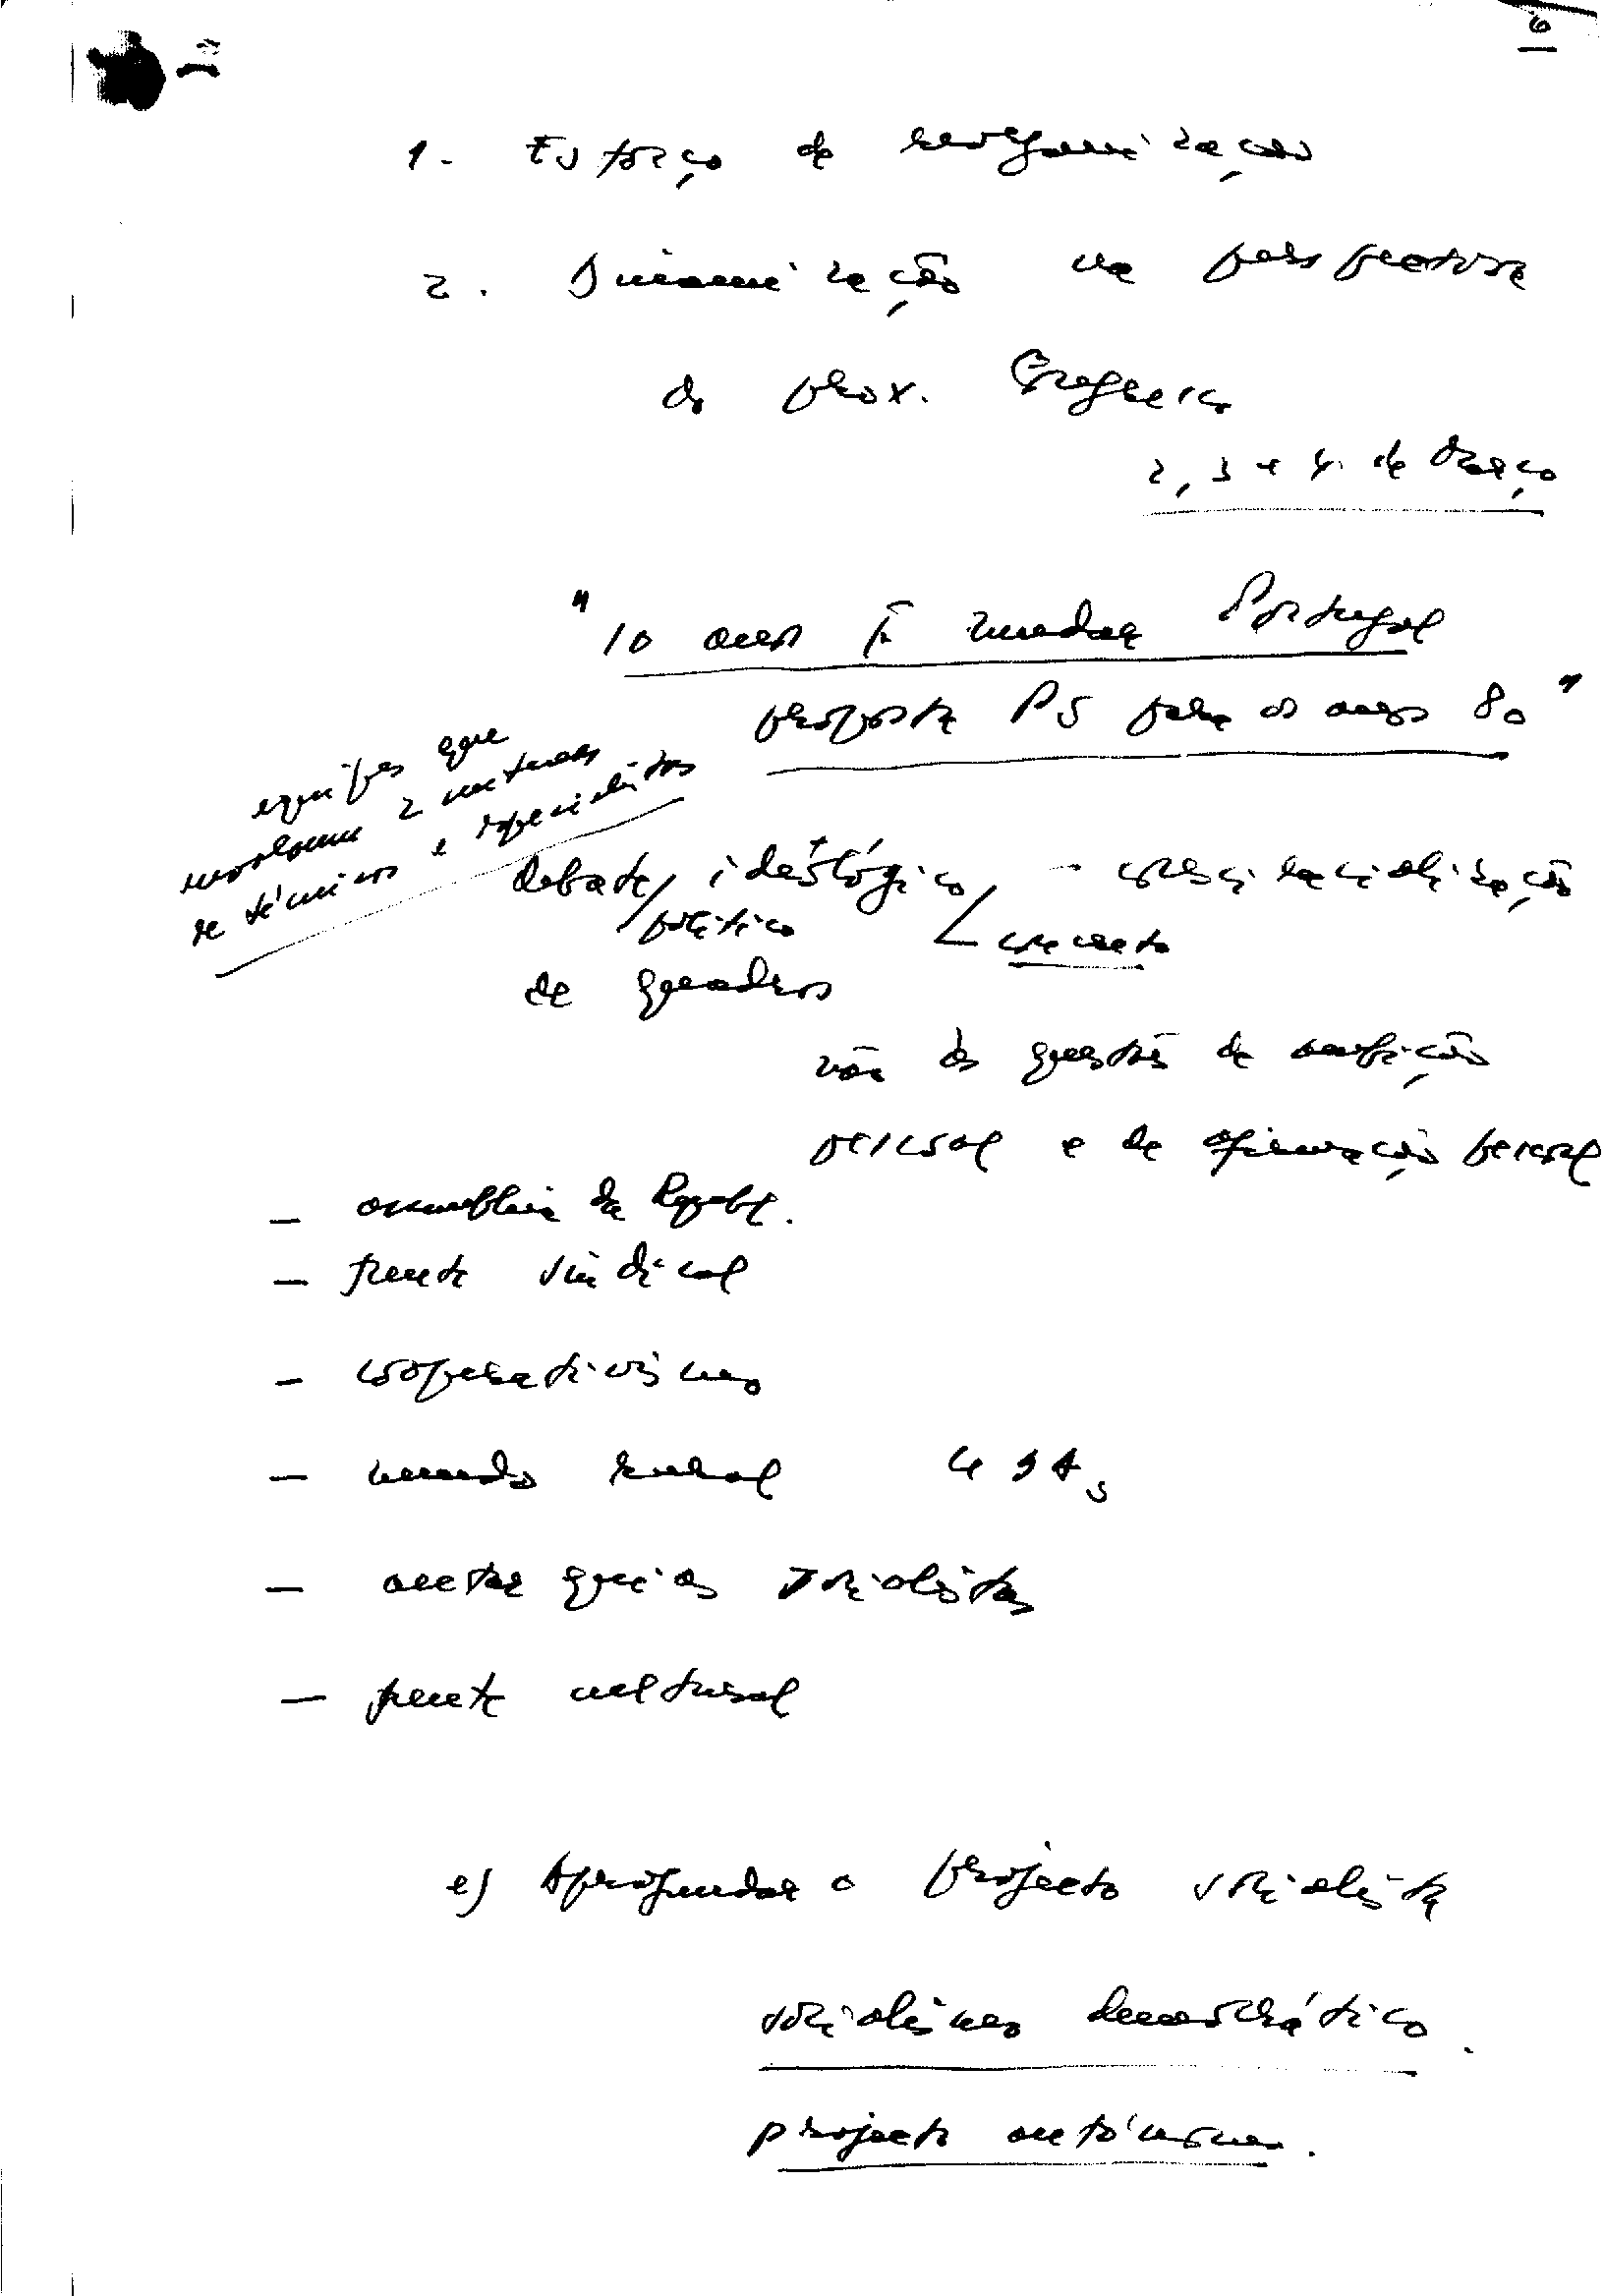 6
1. Esforço de reorganização
2. Dinamização na perspectiva
do prox. Congresso
2, 3 e 4 de Março
"10 anos p. mudar Portugal
proposta PS para os anos 80"
equipas que
envolvam centenas
de técnicos e especialistas
Debate ideológico - consciencialização
político concreto
de quadros
não às questões de ambição
pessoal e de afirmação pessoal
- assembleia da Republ.
- frente sindical
- cooperativismo
- mundo rural
- autarquias socialistas
- frente cultural
e) Aprofundar o projecto socialista
socialismo democrático.
projecto autónomo.